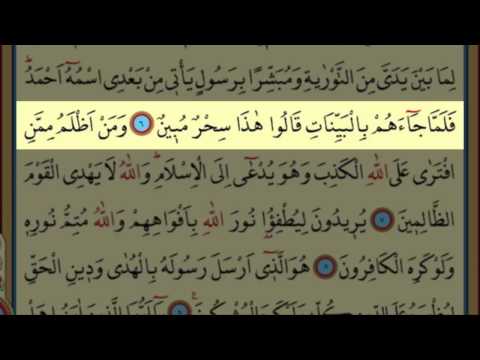 لِمَا بَيْنَ يَدَىَّ مِنَ التَّوْرٰيةِ وَمُبَشِّرًا بِرَسُولٍ يَأْتٖى مِنْ بَعْدِى اسْمُهُٓ اَحْمَدُ ط
فَلَمَّا جَٓاءَهُمْ بِالْبَيِّنَاتِ قَالُوا هٰذَا سِحْرٌ مُبٖينٌ ٦ وَمَنْ اَظْلَمُ مِمَّنِ
افْتَرٰى عَلَى اللّٰهِ الْكَذِبَ وَهُوَ يُدْعٰٓى اِلَى الْاِسْلَامِ ط وَاللّٰهُ لَا يَهْدِى الْقَوْمَ
الظَّالِمٖينَ ٧ يُرٖيدُونَ لِيُطْفِؤُ۫ا نُورَ اللّٰهِ بِاَفْوَاهِهِمْ وَاللّٰهُ مُتِمُّ نُورِهٖ
وَلَوْ كَرِهَ الْكَافِرُونَ ٨ هُوَ الَّذٖٓى اَرْسَلَ رَسُولَهُ بِالْهُدٰى وَدٖينِ الْحَقِّ